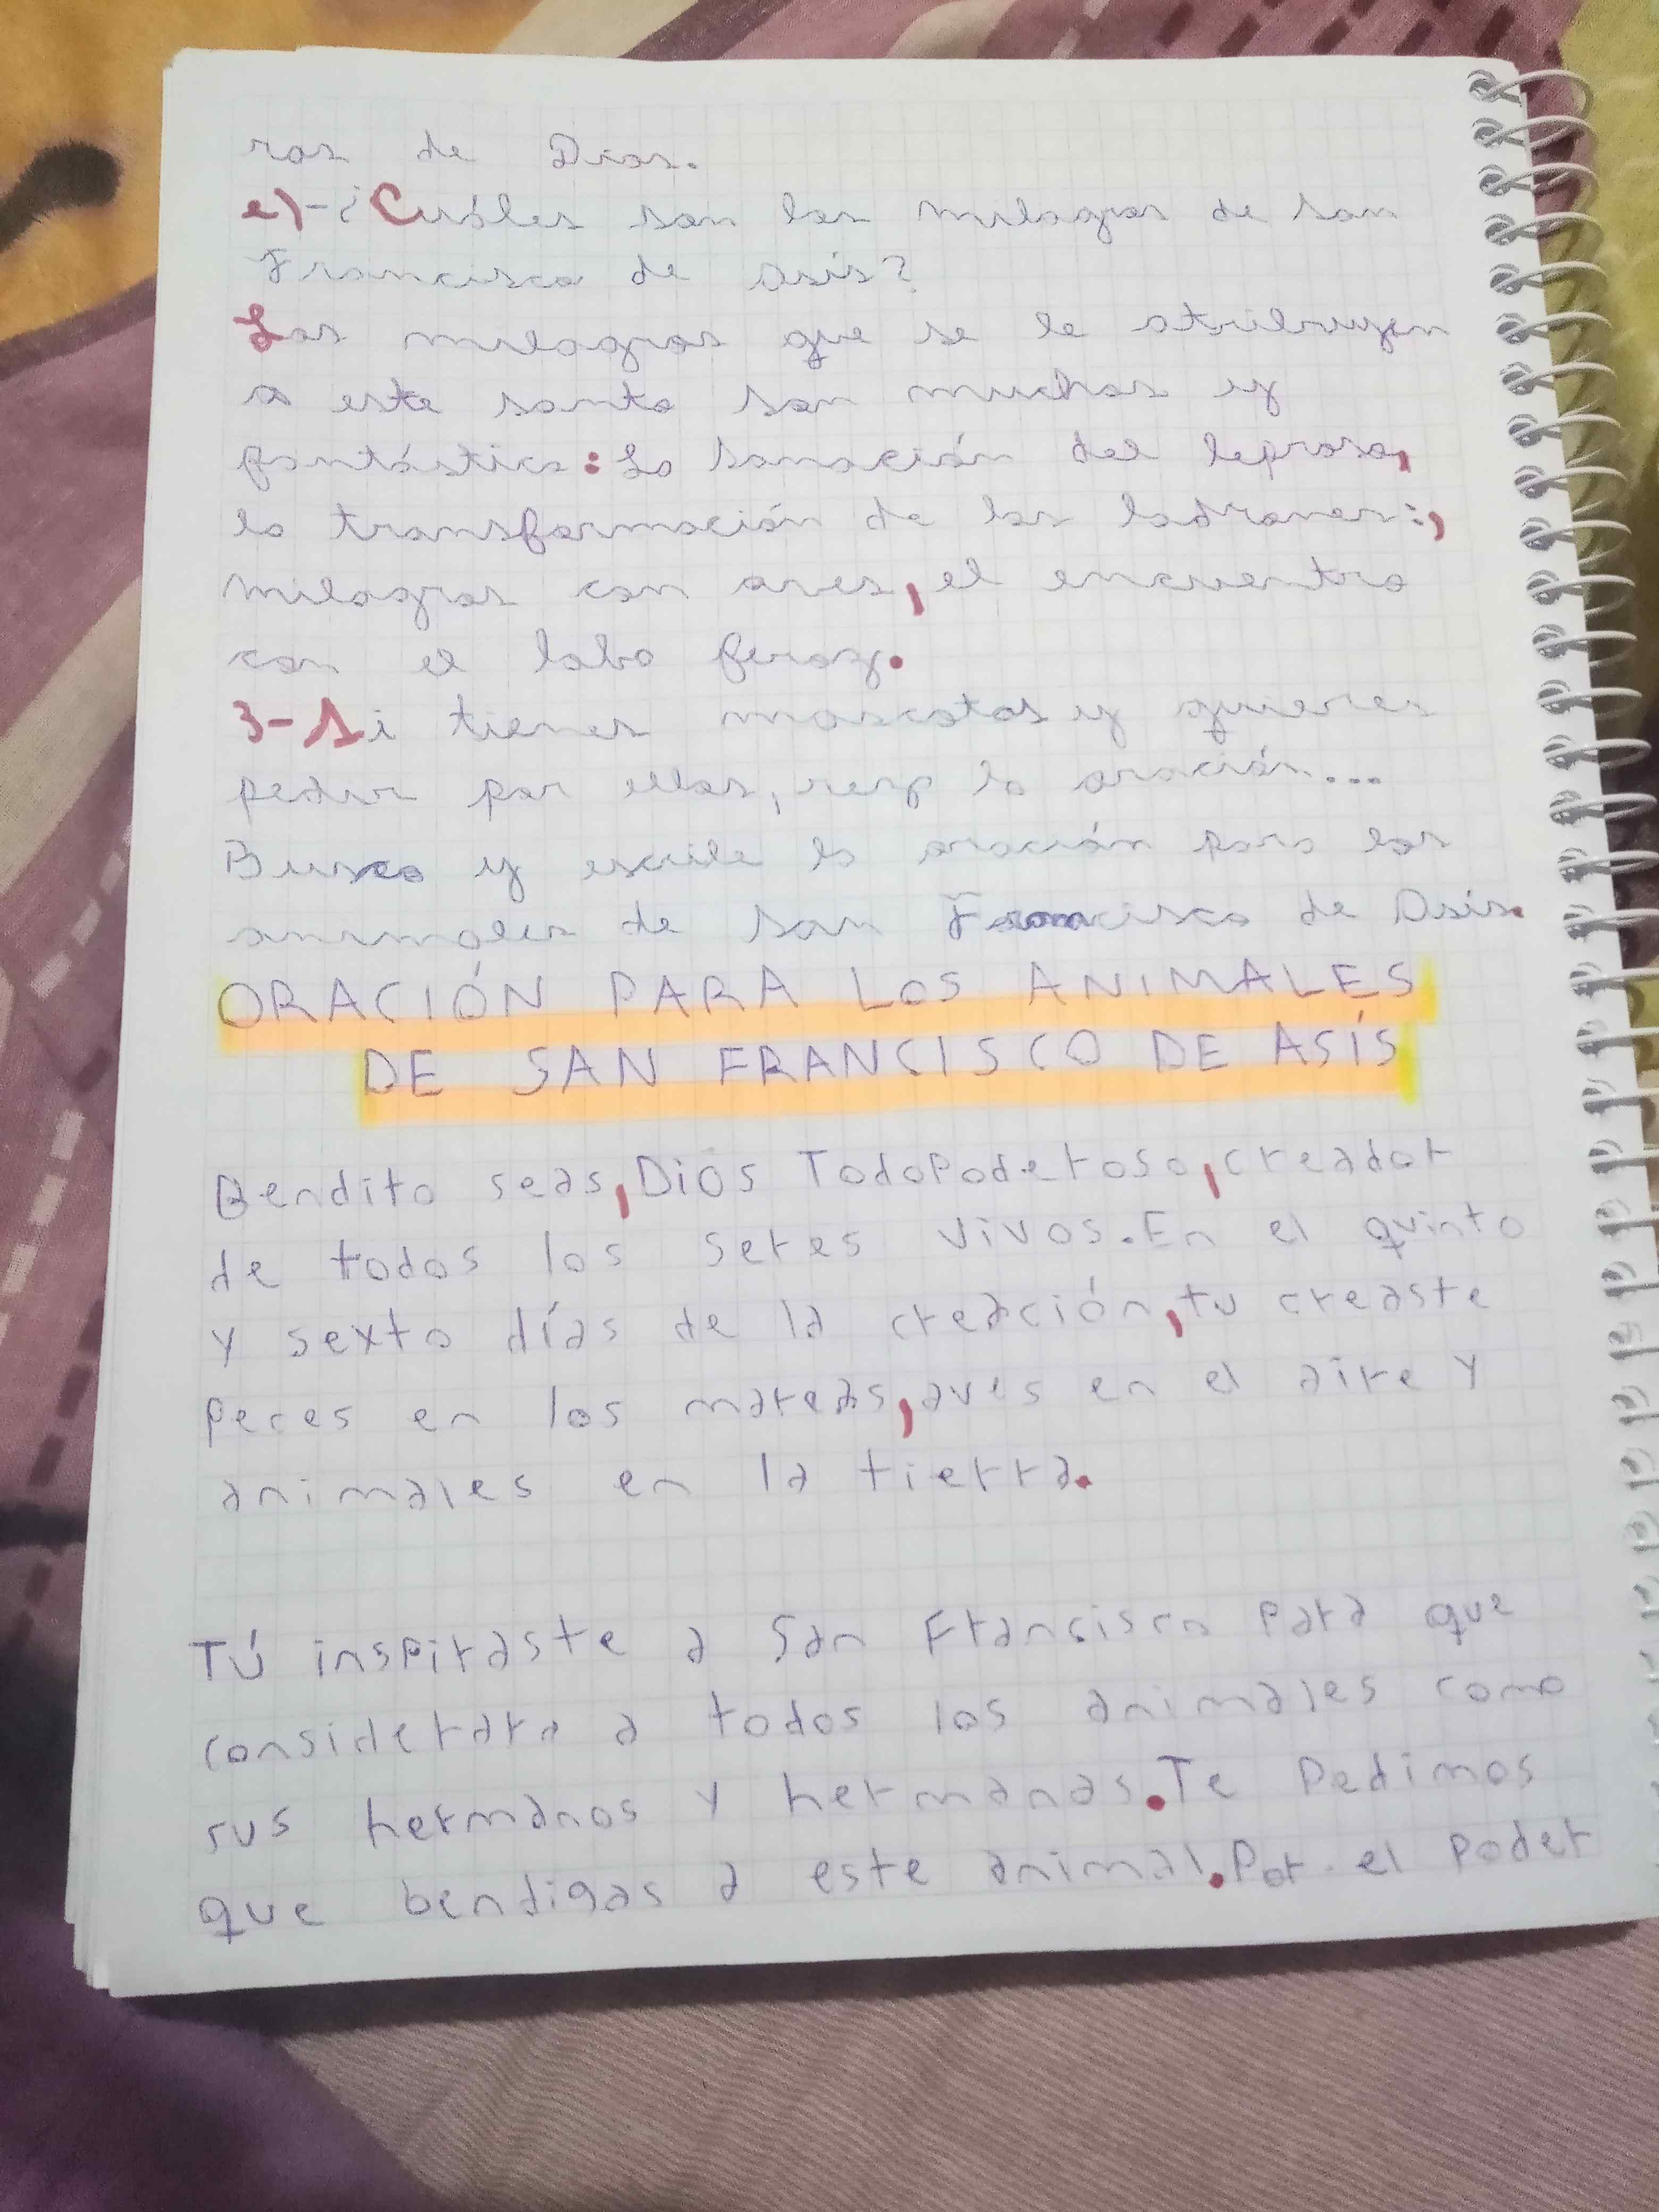 ros de Dios.
e)-¿Cuáles son los milagros de San
Francisco de Asís?
Los milagros que se le atribuyen
a este santo son muchos y
fantástico: La sanación del leproso,
la transformación de los ladrones:,
milagros con aves, el encuentro
con el lobo feroz.
3-Si tienes mascotas y quieres
pedir por ellas, la oración...
Busca y escribe la oración para los
animales de San Francisco de Asís.
ORACIÓN PARA LOS ANIMALES
DE SAN FRANCISCO DE ASÍS
Bendito seas, Dios Todopoderoso, creador
de todos los seres vivos. En el quinto
y sexto días de la creación, tu creaste
peces en los mares, aves en el aire y
animales en la tierra.
Tú inspiraste a San Francisco para que
considerara a todos los animales como
sus hermanos y hermanas. Te pedimos
que bendigas a este animal. Por el poder